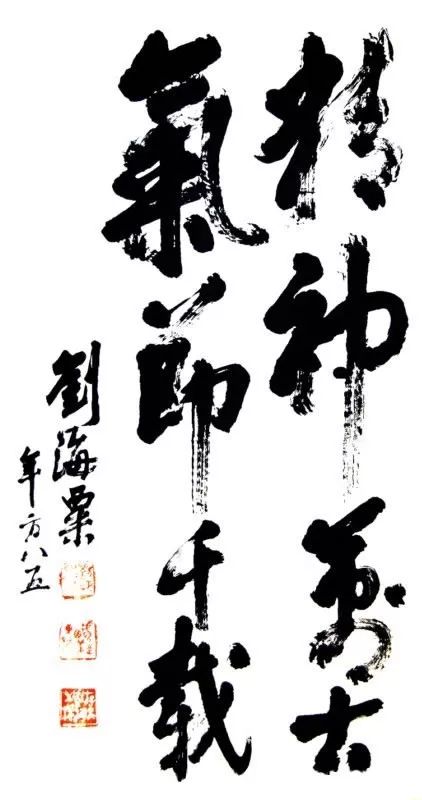 精神萬古
氣節千載
劉海粟
年方八五